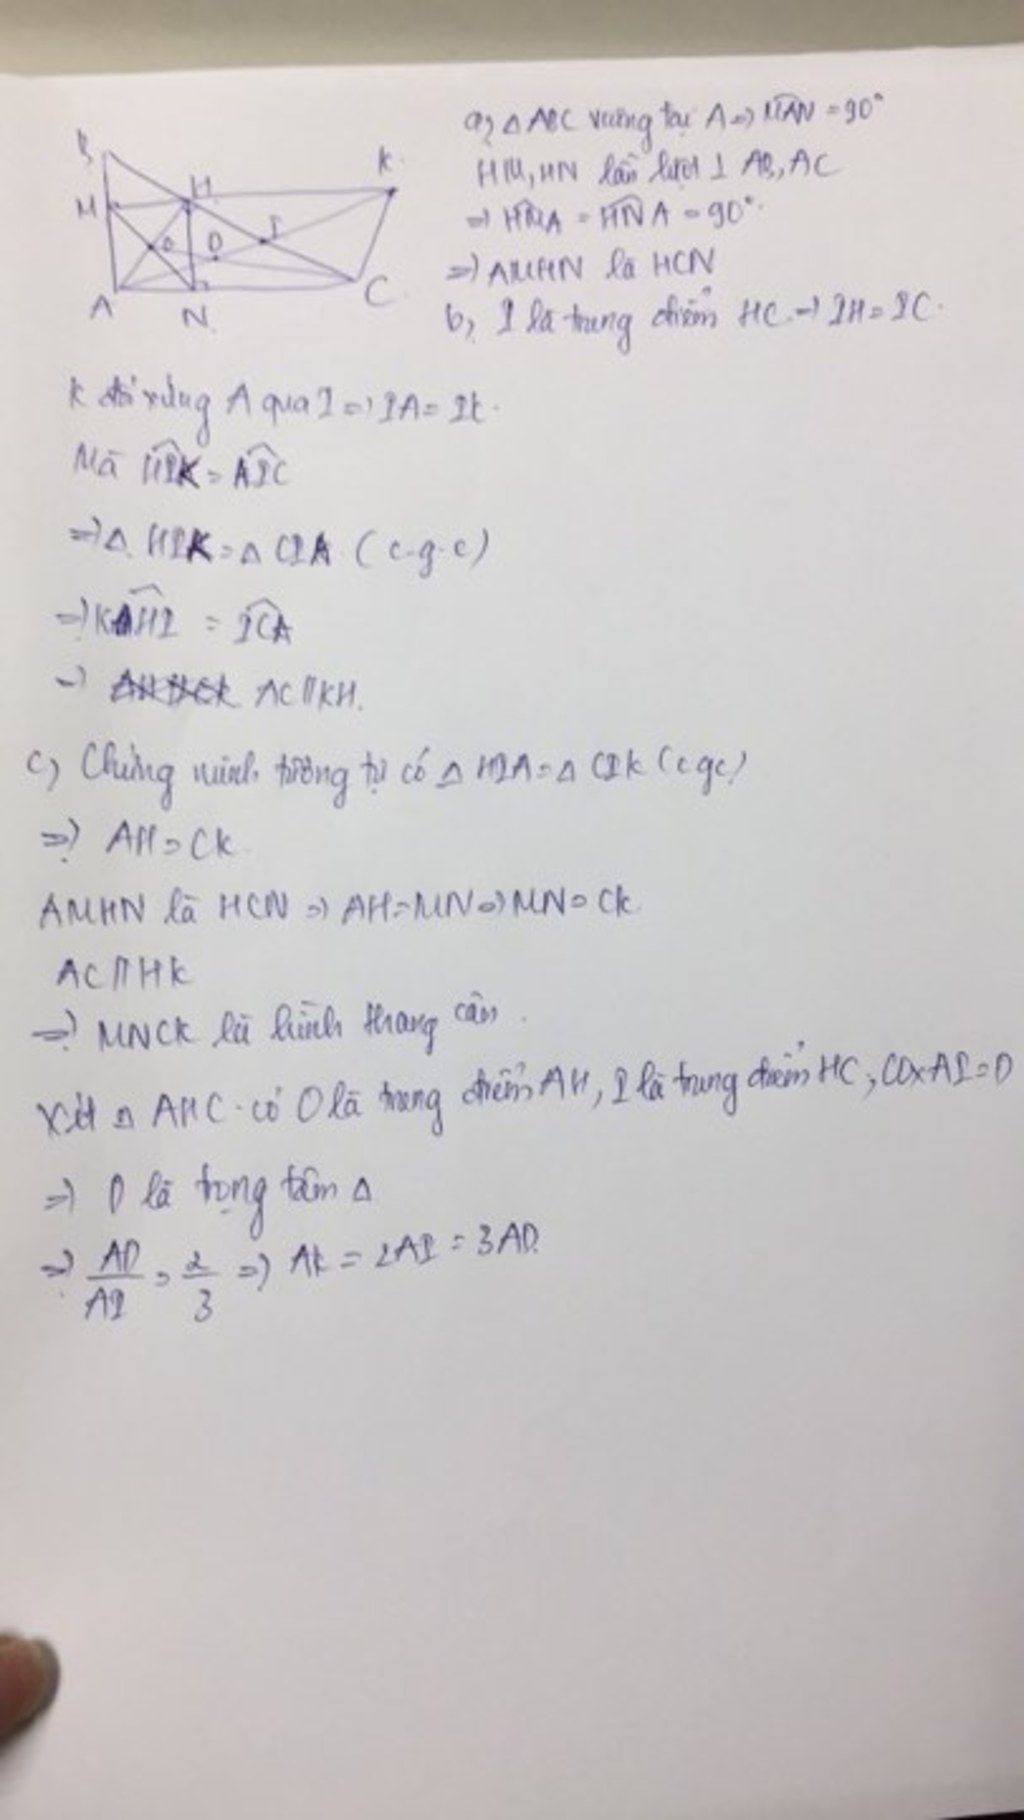 B
K
H
M
I
O
D
A
N
C
a, △ ABC vuông tại A => MAN = 90°
HM, HN lần lượt ⊥ AB, AC
=> HMA = HNA = 90°.
=> AMHN là HCN
b, I là trung điểm HC => IH = IC.
K đối xứng A qua I => IA = IK.
Mà HIK = AIC
=> △ HIK = △ CIA (c.g.c)
=> KHI = ICA
=> AC // KH.
c, Chứng minh tương tự có △ HIA = △ CIK (cgc)
=> AH = CK
AMHN là HCN => AH = MN => MN = CK
AC // HK
=> MNCK là hình thang cân.
Xét △ AHC có O là trung điểm AH, I là trung điểm HC, CO x AI = D
=> D là trọng tâm △
=> AD/AI = 2/3 => AK = 2AI = 3AD.